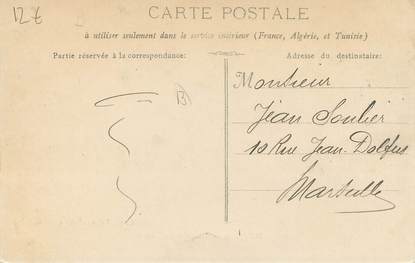 12€
CARTE POSTALE
à utiliser seulement dans le service intérieur (France, Algérie, et Tunisie)
Partie réservée à la correspondance:
Adresse du destinataire:
Monsieur
Jean Soulier
10 Rue Jean-Dolfus
Marseille